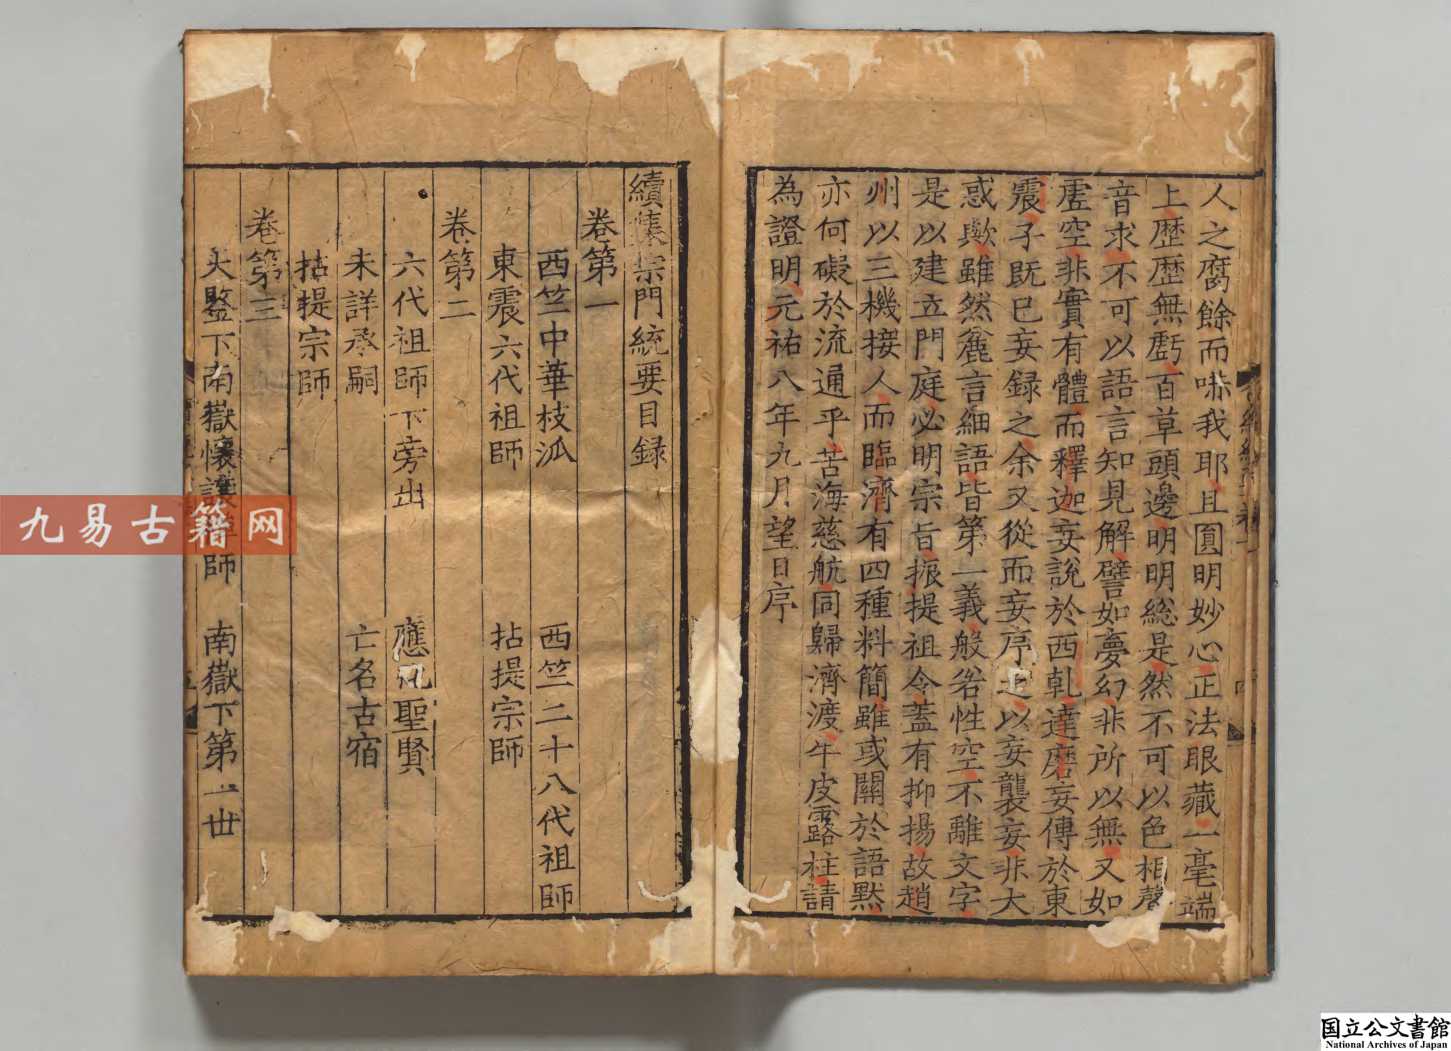 人之腐餘而咻我耶且圓明妙心正法眼藏一毫端
上歷歷無虧百草頭邊明明総是然不可以色相聲
音求不可以語言知見解譬如夢幻非所以無又如
虛空非實有體而釋迦妄說於西乹達磨妄傳於東
震子既已妄録之余又從而妄序之以妄襲妄非大
惑歟雖然麄言細語皆第一義般若性空不離文字
是以建立門庭必明宗旨振提祖令蓋有抑揚故趙
州以三機接人而臨濟有四種料簡雖或關於語默
亦何礙於流通乎苦海慈航同歸濟渡牛皮露柱請
為證明元祐八年九月望日序
續集宗門統要目録
卷第一
西竺中華枝泒 西竺二十八代祖師
東震六代祖師 拈提宗師
卷第二
六代祖師下旁出 應化聖賢
未詳承嗣 亡名古宿
拈提宗師
卷第三
大鑒下南嶽懷讓禪師 南嶽下第一世
九易古籍网
国立公文書館
National Archives of Japan